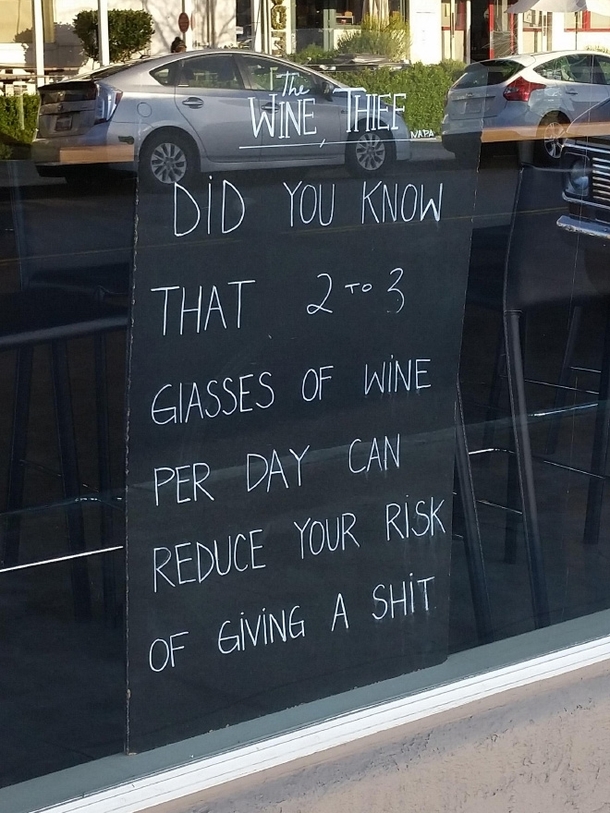 The
WINE THIEF
NAPA
DiD YOU KNOW
THAT 2 TO 3
GLASSES OF WiNE
PER DAY CAN
REDUCE YOUR RiSK
OF GiViNG A SHiT